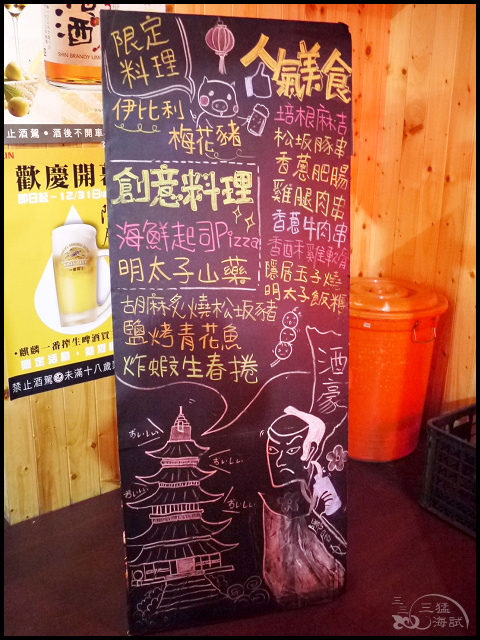 限定
料理
伊比利
梅花豬
創意料理
海鮮起司Pizza
明太子山藥
胡麻炙燒松坂豬
鹽烤青花魚
炸蝦生春捲
人氣美食
培根麻吉
松坂豚串
香蔥肥腸
雞腿肉串
香蔥牛肉串
隱居玉子燒
明太子飯糰
酒豪
おいしい
おいしい
おいしい
おいしい
酒
SHIN BRANDY
止酒駕・酒後不開車
歡慶開
即日起~12/31
・麒麟一番搾生啤酒買
禁止酒駕 未滿十八歲
三猛
海試